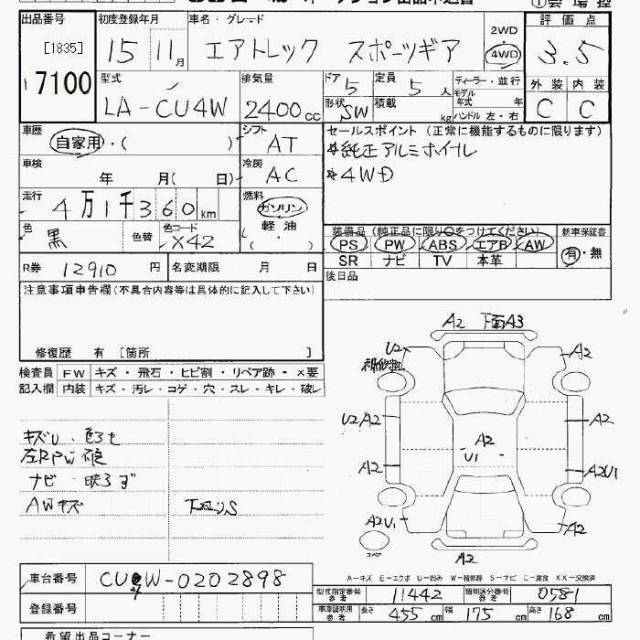 出品番号 初度登録年月 車名・グレード 2WD ・ 4WD 評価点
[1835] 15年 11月 エアトレック スポーツギア 3.5
7100
型式 排気量 ドア 5 定員 5人 ディーラー・並行 外装 内装
LA-CU4W 2400cc 形状 SW 積載 kg モデル年式 年 ハンドル 左・右 C C
車歴 自家用・( ) シフト AT セールスポイント (正常に機能するものに限ります)
*純正アルミホイール
車検 年 月( 日) 冷房 AC *4WD
走行 4万1千360km 燃料 ガソリン
軽油
色 黒 色替 色コード X42 ・( )
装備品 (純正品に限り○をつけてください) 新車保証書
PS PW ABS エアB AW 有・無
SR ナビ TV 本革
R券 12910円 名変期限 月 日 後日品
注意事項申告欄(不具合内容等は具体的に記入して下さい)
修復歴 有 [箇所
検査員 FW キズ・飛石・ヒビ割・リペア跡・×要
記入欄 内装 キズ・汚レ・コゲ・穴・スレ・キレ・破レ
左RPW
ナビ 映らず
AWキズ
A2 下面A3
U2 A2
U2A2 A2
A2 U1
A2 A2U1
A2U1 A2
スペア A2
A-キズ E-エクボ U-凹み W-補修跡 S-サビ C-腐食 XX-交換済
車台番号 CU4W-0202898
型式指定番号 11442 類別区分番号 0581
登録番号 長さ 455cm 幅 175cm 高さ 168cm
希望出品コーナー